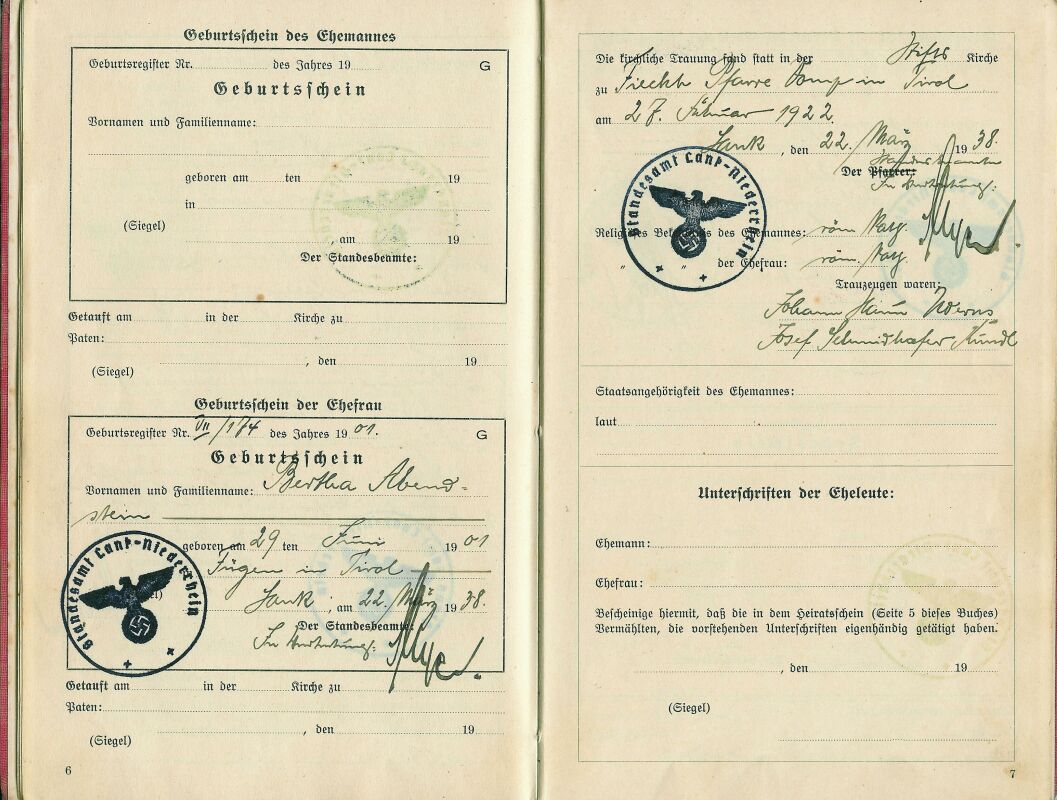 Geburtsschein des Ehemannes
Geburtsregister Nr. des Jahres 19 G
Geburtsschein
Vornamen und Familienname:
geboren am ten 19
in
(Siegel)
, am 19
Der Standesbeamte:
Getauft am in der Kirche zu
Paten:
, den 19
(Siegel)
Geburtsschein der Ehefrau
Geburtsregister Nr. VII/174 des Jahres 1901. G
Geburtsschein
Vornamen und Familienname: Bertha Abend-
stein
geboren am 29 ten Juni 1901
Fügen in Tirol
Lank, am 22. März 1938.
Der Standesbeamte:
In Vertretung:
Standesamt Lank-Niederrhein
Getauft am in der Kirche zu
Paten:
, den 19
(Siegel)
6
Die kirchliche Trauung fand statt in der Stifts Kirche
zu Fiecht Pfarre Vomp in Tirol
am 27. Januar 1922.
Lank, den 22. März 1938.
Standesbeamte
Der Pfarrer:
In Vertretung:
Standesamt Lank-Niederrhein
Religiöses Bekenntnis des Ehemannes: röm. kath.
" " der Ehefrau: röm. kath.
Trauzeugen waren:
Johann
Josef Schmidhofer Kundl
Staatsangehörigkeit des Ehemannes:
laut
Unterschriften der Eheleute:
Ehemann:
Ehefrau:
Bescheinige hiermit, daß die in dem Heiratschein (Seite 5 dieses Buches)
Vermählten, die vorstehenden Unterschriften eigenhändig getätigt haben.
, den 19
(Siegel)
7